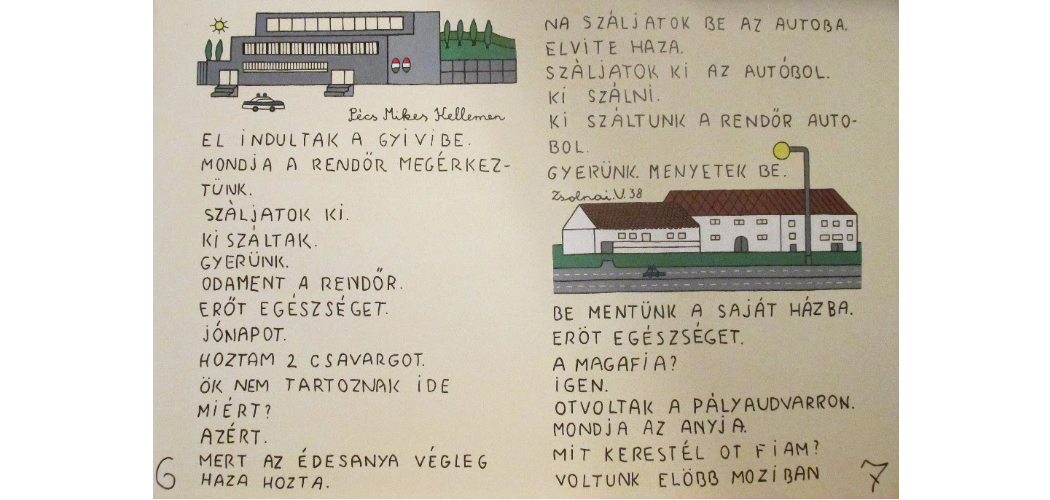 Pécs Mikes Kellemen
EL INDULTAK A GYIVIBE.
MONDJA A RENDŐR MEGÉRKEZ-
TÜNK.
SZÀLJATOK KI.
KI SZÁLTAK.
GYERÜNK.
ODAMENT A RENDŐR.
ERŐT EGÉSZSÉGET.
JÓNAPOT.
HOZTAM 2 CSAVARGOT.
ÖK NEM TARTOZNAK IDE
MIÉRT?
AZÉRT.
MERT AZ ÉDESANYA VÉGLEG
HAZA HOZTA.
6
NA SZÁLJATOK BE AZ AUTOBA.
ELVITE HAZA.
SZÀLJATOK KI AZ AUTÓBOL.
KI SZÁLNI.
KI SZÁLTUNK A RENDŐR AUTO-
BOL.
GYERÜNK. MENYETEK BE.
Zsolnai.V. 38
BE MENTÜNK A SAJÁT HÁZBA.
ERÖT EGÉSZSÉGET.
A MAGAFIA?
IGEN.
OTVOLTAK A PÁLYAUDVARRON.
MONDJA AZ ANYJA.
MIT KERESTÉL OT FIAM?
VOLTUNK ELÖBB MOZIBAN
7